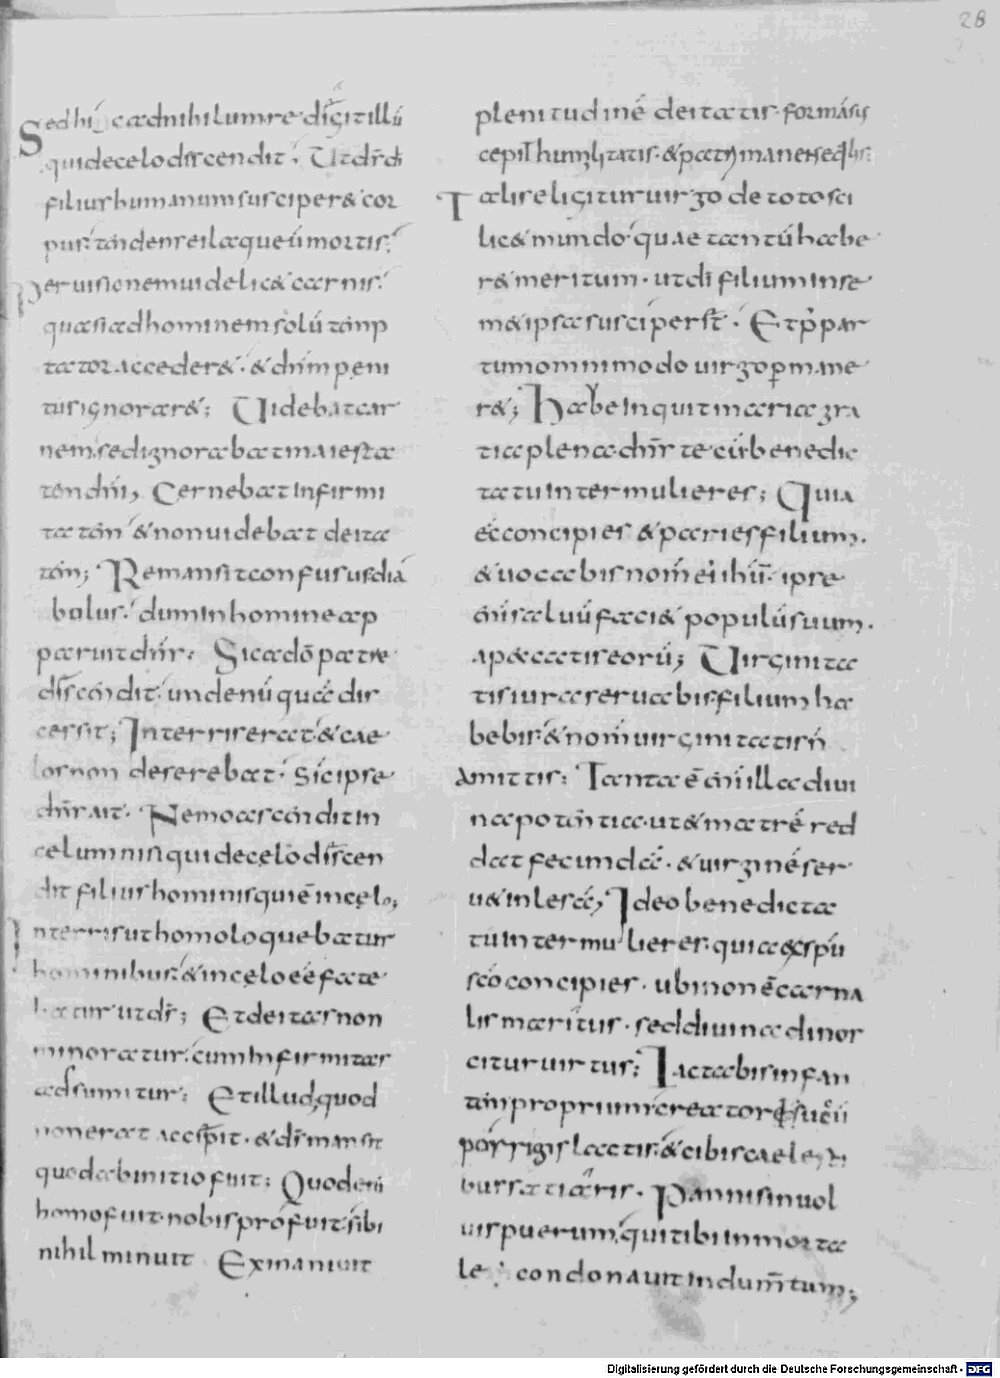 28
Sed hic ad nihilum redigitillū
qui de celo discendit. Ut dr̄ di
filius humanum susciper& cor
pus. tandem reilaqueū mortis.
Per uisionem uidelic& carnis.
quasi ad hominem solū temp
tator accedere&. & dn̄m peni
tus ignorar&; Uidebat car
nem. sed ignorabat maiesta
tem dn̄i, Cernebat infirmi
tatem & non uidebat deita
tem; Remansit confusus dia
bolus. dum in homine ap
paruit dn̄s. Sic ad opatre
discendit. unde nūquā dis
cessit; In terris erat. & cae
los non deserebat. Sic ipse
dn̄s ait. Nemo ascendit in
celum nisi qui de cęlo discen
dit filius hominis qui ē in cęlo;
In terris ut homo loquebatur
hominibus. & in cęlo eē fate
batur ut ds̄; Et deitas non
minoratur. cum infirmitas
adsumitur. Et illud, quod
non erat accepit. & ds̄ mansit
quod ab initio fuit; Quod enī
homo fuit. nobis profuit. sibi
nihil minuit Exinaniuit
plenitudinē deitatis. formā
cepit humilitatis. & patri man&
Talis eligitur uirgo de toto sci
lic& mundo. quae tantū habe
r& meritum. ut dī filium in se
m&ipsa susciperet. Et p̄ par
tum omnimodo uirgo p̄mane
r&; Habe inquit maria gra
tia plena. dn̄s tecū. benedic
ta tu inter mulieres; Quia
ecce concipies & paries filium.
& uocabis nomen ei ihū. ipse
enī saluū faci& populū suum.
a p&catis eorū; Uirginita
tis iura seruabis. filium ha
bebis. & nomen uirginitatis n̄
amittis. Tanta ē enī illa diui
na potentia. ut & matrē red
dat fecundā. & uirginē ser
u& inlesā, Ideo benedicta
tu inter mulieres. quia ex sp̄u
sc̄o concipies. ubi non ē carna
lis maritus. sed diuina dinos
citur uirtus; Lactabis infan
tem proprium. creatorē suū
porrigis lactis. & cibis caeles
bus satiaris. Pannis inuol
uis puerum, qui tibi inmorta
le condonauit indumentum;
Digitalisierung gefördert durch die Deutsche Forschungsgemeinschaft - DFG